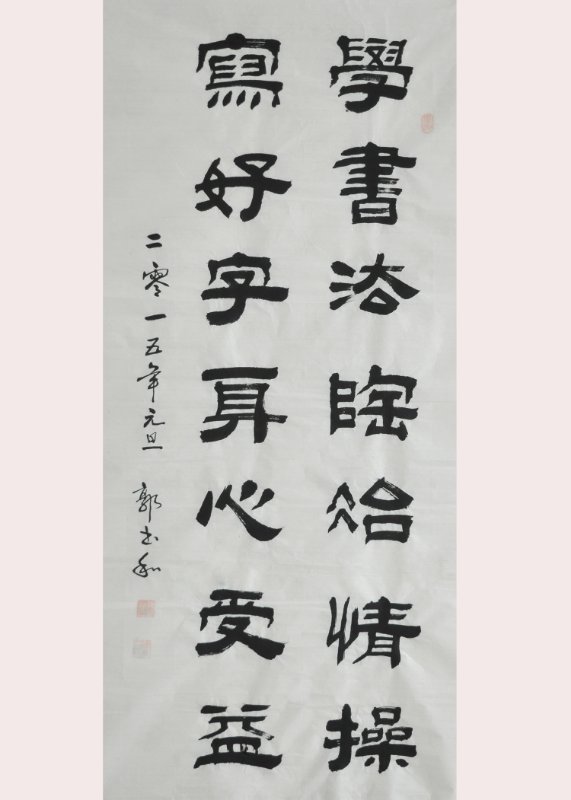 學書法陶冶情操
寫好字耳心受益
二零一五年元旦 郭玉和